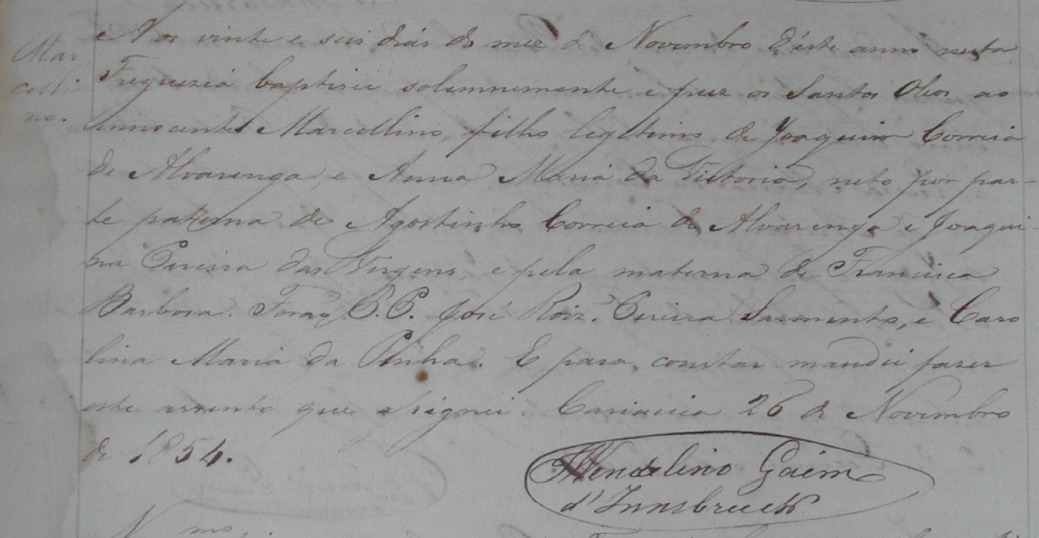 Mar
celli
no.
Aos vinte e seis dias do mez de Novembro d'este anno nesta
Freguezia baptisei solemnemente e puz os Santos Oleos ao
innocente Marcellino, filho legitimo de Joaquim Correia
de Alvarenga, e Anna Maria da Victoria, neto por par-
te paterna de Agostinho Correia de Alvarenga e Joaqui-
na Pereira das Virgens, e pela materna de Francisca
Barbosa. Forão P.P. José Roiz. Pereira Sarmento, e Caro
lina Maria da Penha. E para constar mandei fazer
este assento que assignei. Cariacica 26 de Novembro
de 1854.
Wendelino Gaim
d'Innsbruck